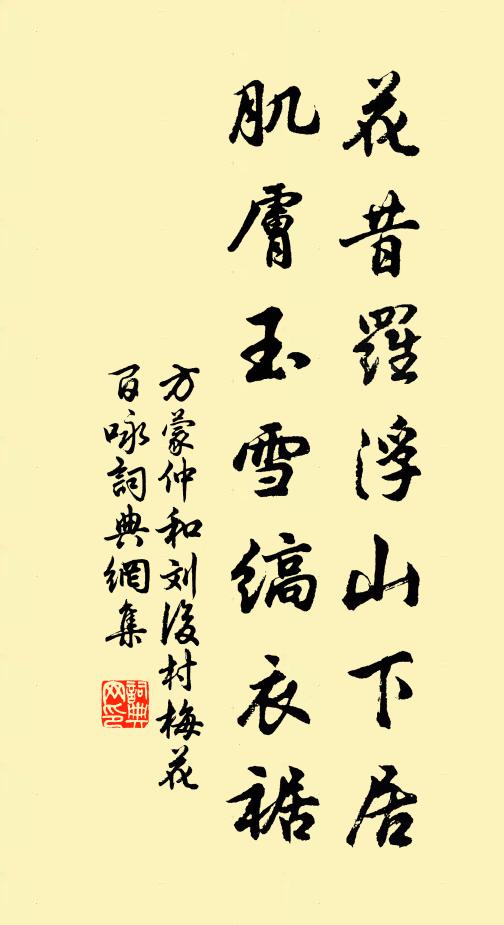 花昔羅浮山下居
肌膚玉雪縞衣裾
方蒙仲和刘後村梅花
百咏詞典網集
詞典网印